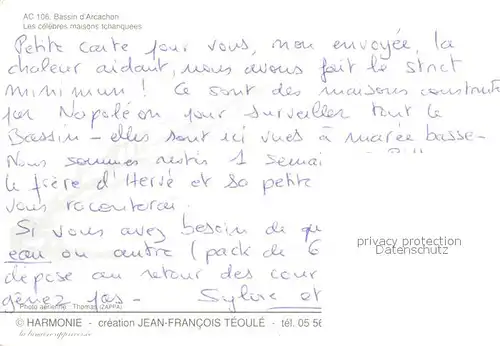 AC 106. Bassin d'Arcachon
Les célèbres maisons tchanquées
Petite carte pour vous, non envoyée, la
chaleur aidant, nous avons fait le strict
minimum ! Ce sont des maisons construites
par Napoléon pour surveiller tout le
Bassin - elles sont ici vues à marée basse -
Nous sommes restés 1 semai
le frère d'Hervé et sa petite
vous raconterai.
Si vous avez besoin de
eau ou autre (pack de 6
dépose au retour des cour
gênez pas - Sylvie et
privacy protection
Datenschutz
Photo aérienne : Thomas (ZAPPA)
© HARMONIE - création JEAN-FRANÇOIS TÉOULÉ - tél. 05 56
la lumière apprivoisée